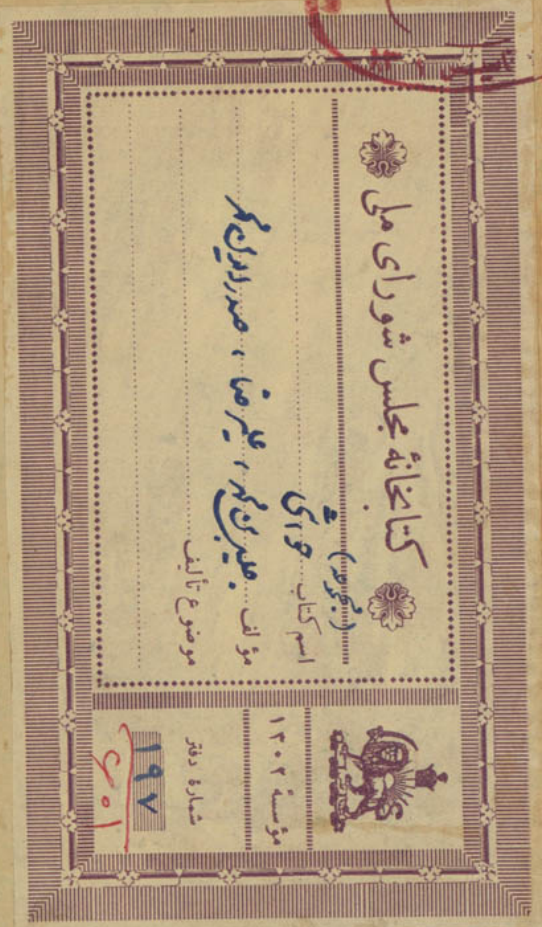 کتابخانهٔ مجلس شورای ملی
(مجموعه)
اسم کتاب حواشی
مؤلف علیرضا، صدرالدین محمد
موضوع تألیف
مؤسسهٔ ۱۳۰۲
شمارهٔ دفتر
۱۹۷
۶۰۱